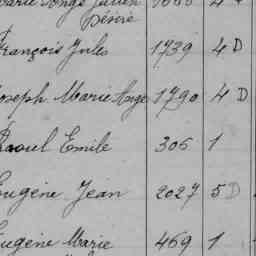 Marie Ange Julien
Désiré
François Jules 1739 4 D
Joseph Marie Ange 1790 4 D
Raoul Emile 306 1
Eugène Jean 2027 5 D
Eugène Marie 469 1